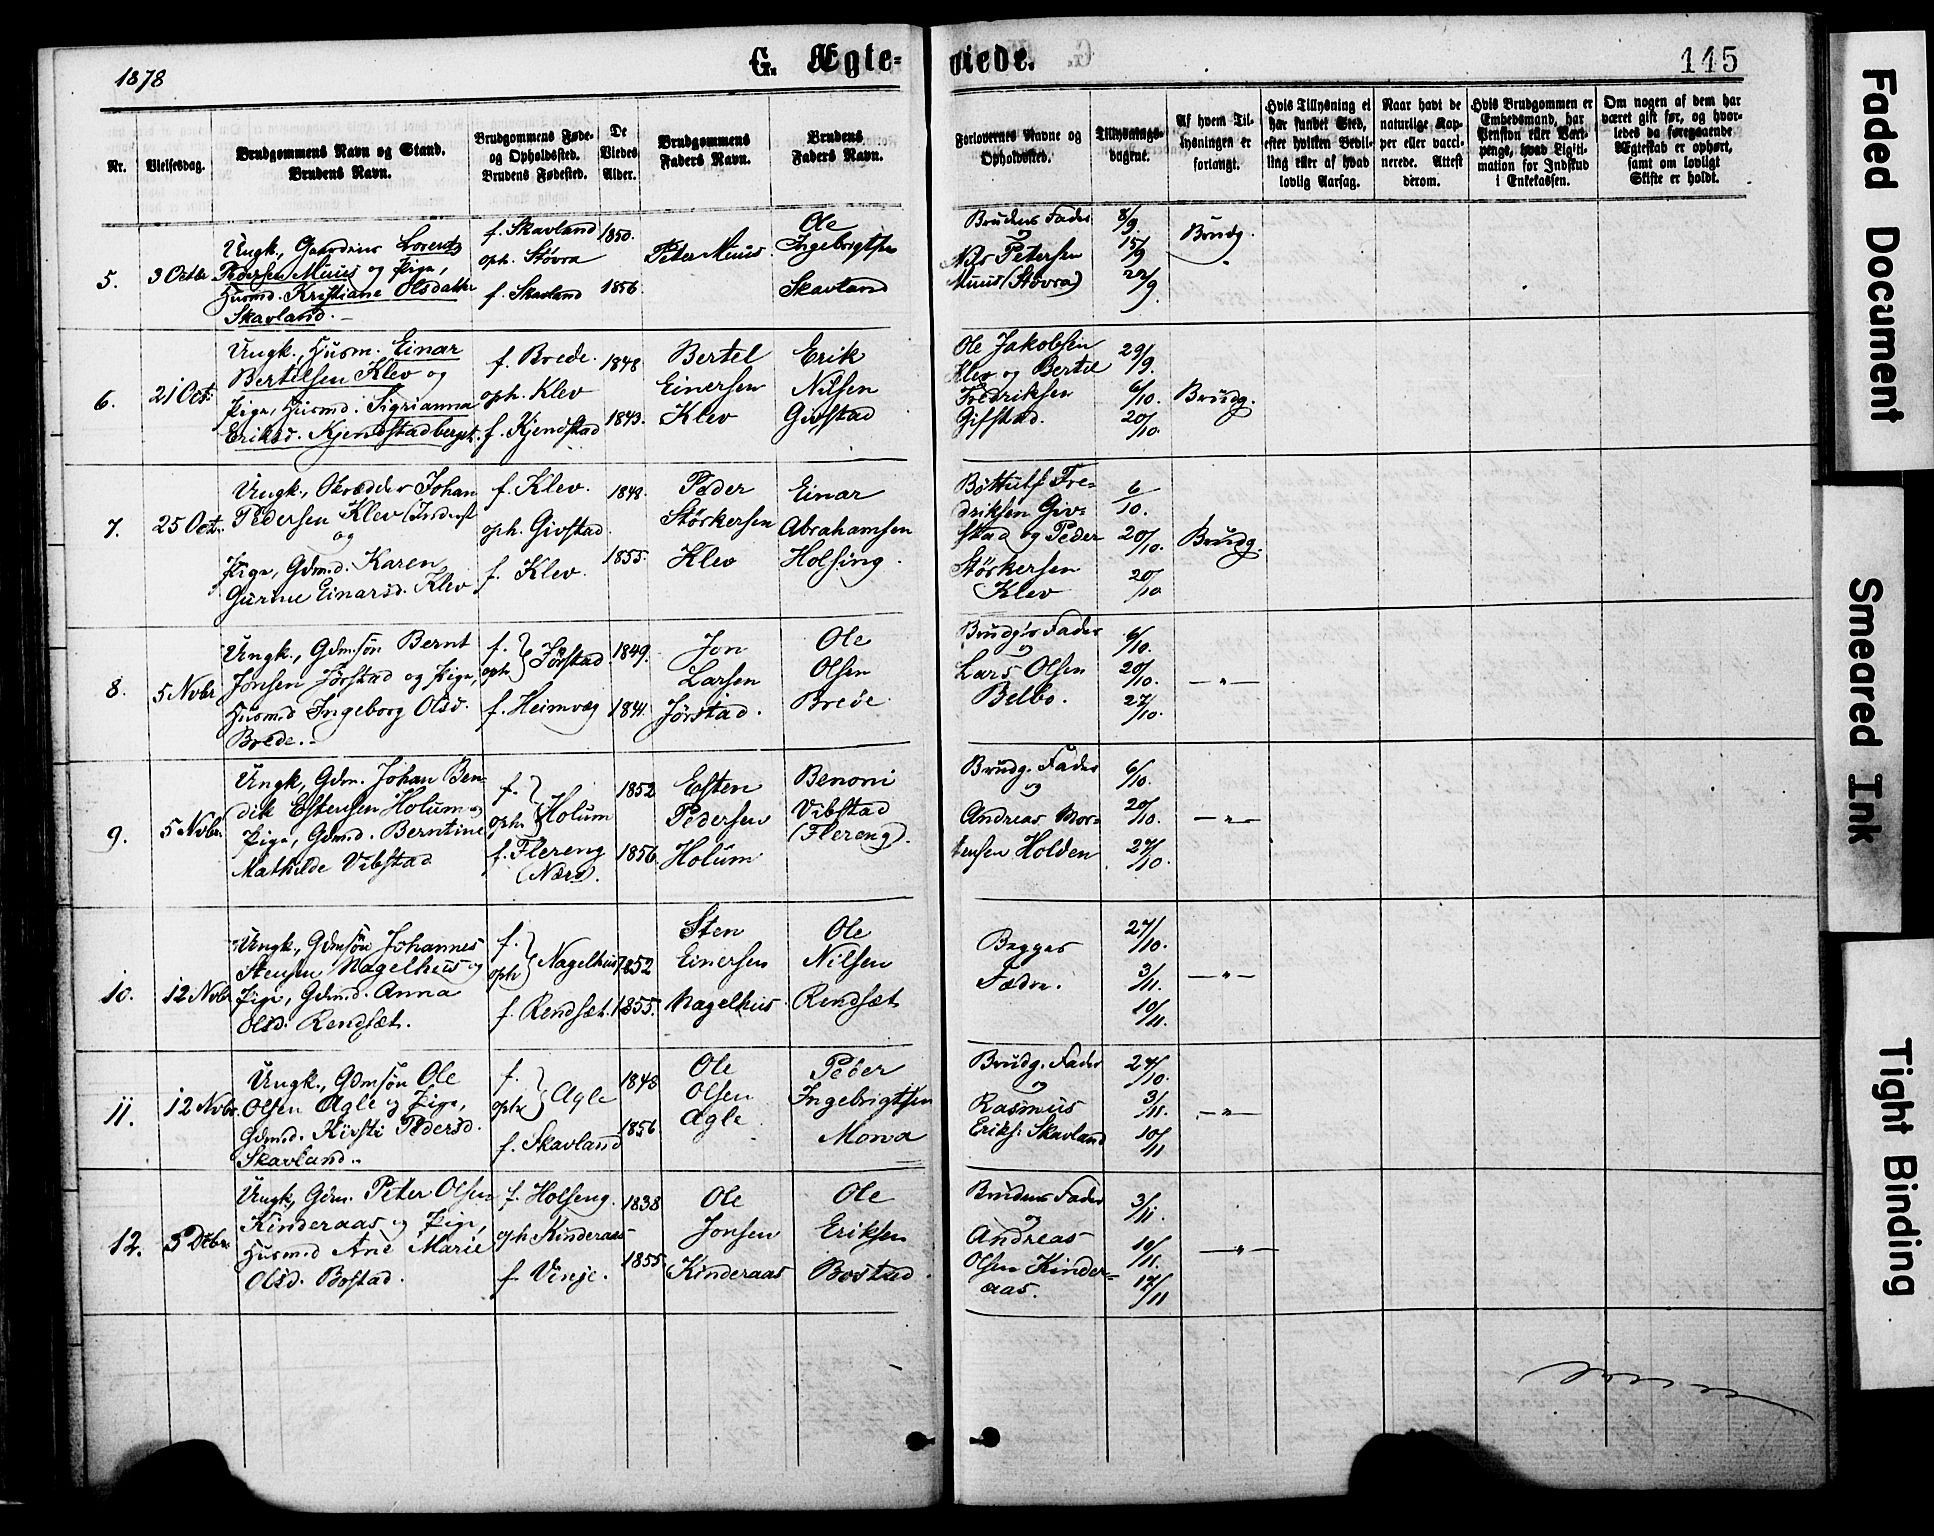 1878
G. Ægte-
viede.
115
Nr.
Vielsesdag.
Brudgommens Navn og Stand.
Brudens Navn.
Brudgommens Føde-
og Opholdssted.
Brudens Fødested.
De
Viedes
Alder.
Brudgommens
Faders Navn.
Brudens
Faders Navn.
Forlovernes Navne og
Opholdssted.
Tillysnings-
dagene.
Af hvem Til-
lysningen er
forlangt.
Hvis Tillysning ei
har fundet Sted,
efter hvilken Bevil-
ling eller af hvad
lovlig Aarsag.
Naar havt de
naturlige Kop-
per eller vacci-
nerede. Attest
derom.
Hvis Brudgommen er
Embedsmand, har
Pension eller Vart-
penge, hvad Legiti-
mation for Indskud
i Enkekassen.
Om nogen af dem har
været gift før, og hvor-
ledes da foregaaende
Ægteskab er ophørt,
samt om lovligt
Skifte er holdt.
5.
3 Octbr
Ungk., Lorents
Muus og Pige,
Husmd. Kristiane Olsdatter
Skavland.
f. Skavland
oph. Støvra
f. Skavland
1850.
1856.
Peter Muus
Ole
Ingebrigtsen
Skavland
Brudens Fader
og
Nils Petersen
Muus (Støvra)
8/9.
15/9
22/9.
Brudg.
6.
21 Oct.
Ungk., Husm. Einar
Bertelsen Klev og
Pige, Husmd. Sigrianna
Eriksd. Kjendstadberget.
f. Brede.
oph. Klev
f. Kjendstad
1848
1843.
Bertel
Einersen
Klev
Erik
Nilsen
Givstad
Ole Jakobsen
Klev og Bertel
Fredriksen
Gifstad.
29/9.
6/10.
20/10.
Brudg.
7.
25 Oct.
Ungk., Skrædder Johan
Pedersen Klev
og
Pige, Gdmd. Karen
Gurine Einarsd. Klev
f. Klev.
oph. Givstad
f. Klev.
1848.
1855.
Peder
Størkersen
Klev
Einar
Abrahamsen
Holsing.
Bottulf Fre-
driksen Giv-
stad og Peder
Størkersen
Klev
6/10.
20/10.
20/10
Brudg.
8.
5 Nvbr
Ungk., Gdmsøn Bernt
Jonsen Jørstad og Pige,
Husmd Ingeborg Olsd.
Brede.
f.
oph. } Jørstad.
f. Heimvæg
1849.
1841.
Jon
Larsen
Jørstad.
Ole
Olsen
Brede
Brudg's Fader
og
Lars Olsen
Belbo.
6/10.
20/10.
27/10.
— " —
9.
5 Nvbr.
Ungk., Gdm. Johan Ben-
dik Estensen Holum og
Pige, Gdmd. Berntine
Mathilde Vibstad
f.
oph. } Holum
f. Flereng
(Nærø).
1852
1856
Esten
Pedersen
Holum
Benoni
Vibstad
(Flereng).
Brudg. Fader
og
Andreas Mor-
tensen Holden
6/10.
20/10.
27/10.
— " —
10.
12 Nvbr
Ungk., Gdmsøn Johannes
Stensen Nagelhus og
Pige, Gdmd. Anna
Olsd. Rendsæt.
f.
oph } Nagelhus
f. Rendsæt.
1852
1855.
Sten
Einersen
Nagelhus
Ole
Nilsen
Rendsæt
Begges
Fædre.
27/10.
3/11.
10/11.
— " —
11.
12 Nvbr.
Ungk., Gdmsøn Ole
Olsen Agle og Pige,
Gdmd. Kirsti Pedersd.
Skavland.
f.
oph } Agle
f. Skavland
1848
1856
Ole
Olsen
Agle
Peder
Ingebrigtsen
Morva
Brudg. Fader
og
Rasmus
Eriks. Skavland
27/10.
3/11.
10/11
— " —
12.
5 Dcbr.
Ungk., Gdm. Peter Olsen
Kinderaas og Pige,
Husmd Ane Marie
Olsd. Bostad.
f. Holseng.
oph Kinderaas
f. Vinje.
1838
1855.
Ole
Jonsen
Kinderaas
Ole
Eriksen
Bostad.
Brudens Fader
og
Andreas
Olsen Kinder-
aas.
3/11.
10/11.
17/11
— " —
Faded Document
Smeared Ink
Tight Binding